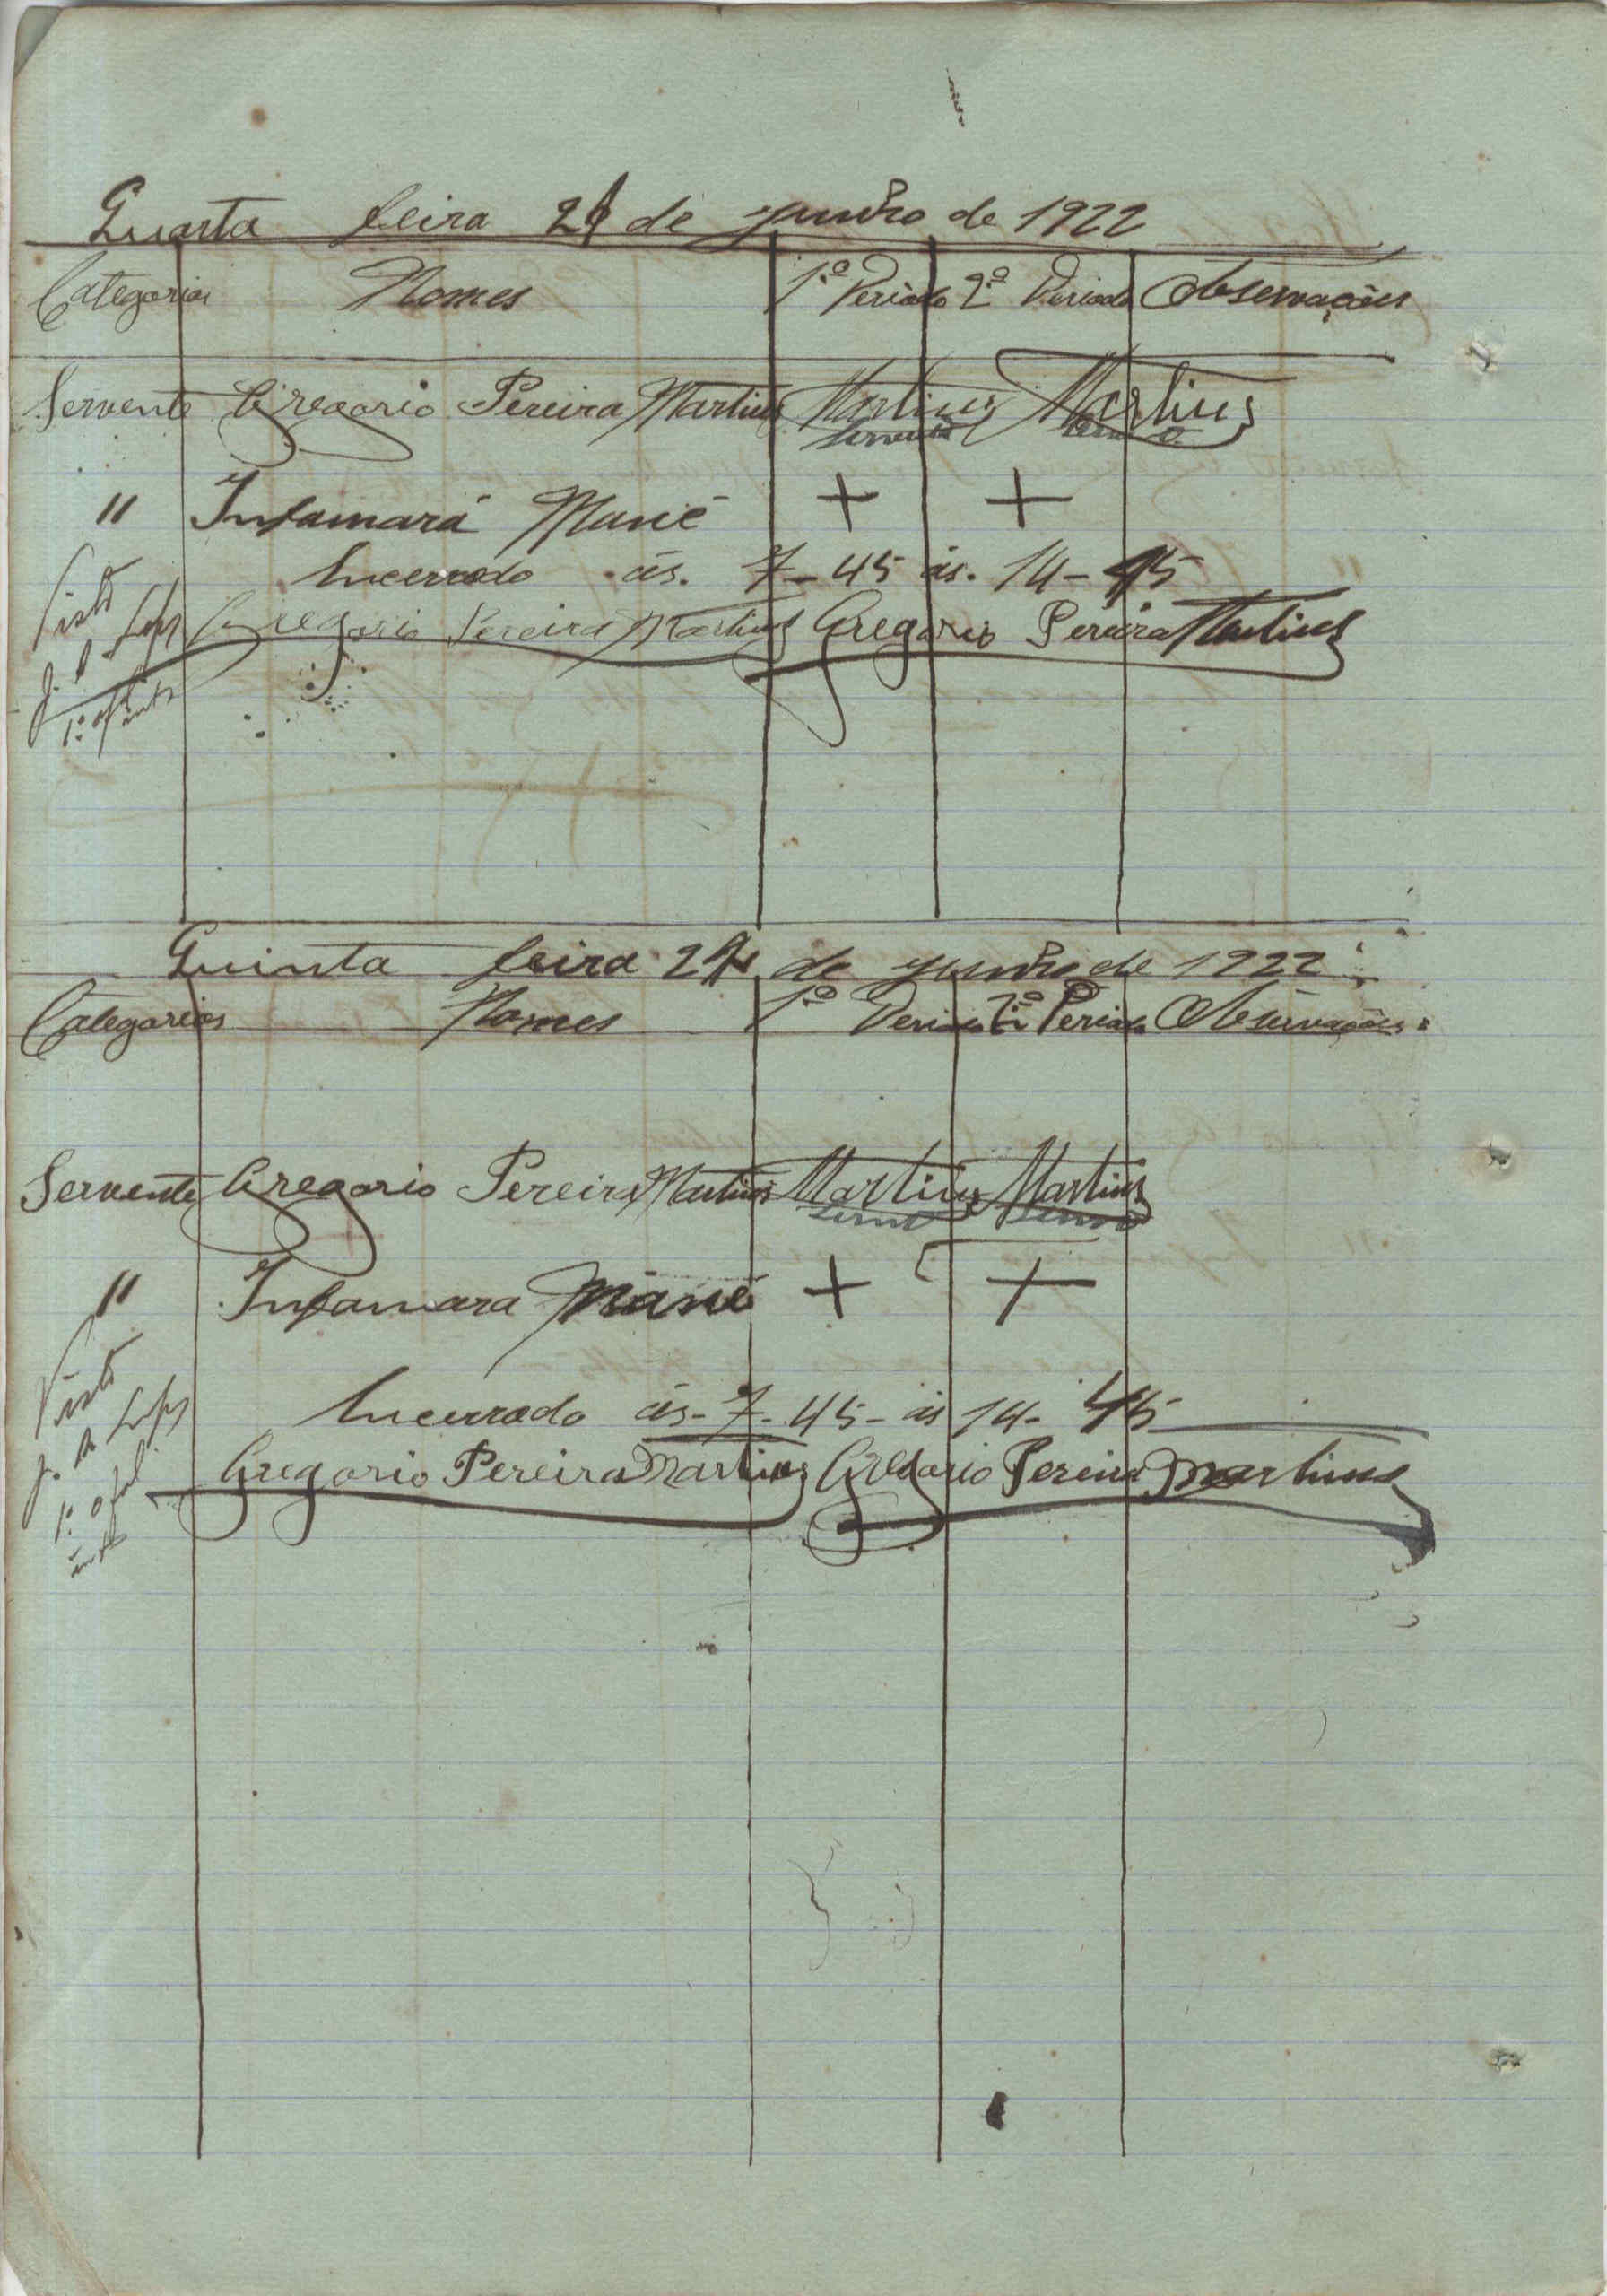 Quarta feira 21 de Junho de 1922
Categorias Nomes 1.º Periodo 2.º Periodo Observações
Servente Gregorio Pereira Martins Martins Martins
Servente
" Infamará Mané + +
Encerrado ás. 7-45 ás. 14-45
Gregorio Pereira Martins Gregorio Pereira Martins
Visto
J. A Lopes
1.º of int
Quinta feira 22 de Junho de 1922
Categorias Nomes 1.º Periodo 2.º Periodo Observações
Servente Gregorio Pereira Martins Martins Martins
" Infamara Mané + +
Encerrado ás-7-45-ás 14-45
Gregorio Pereira Martins Gregorio Pereira Martins
Visto
J. A Lopes
1.º ofal
int